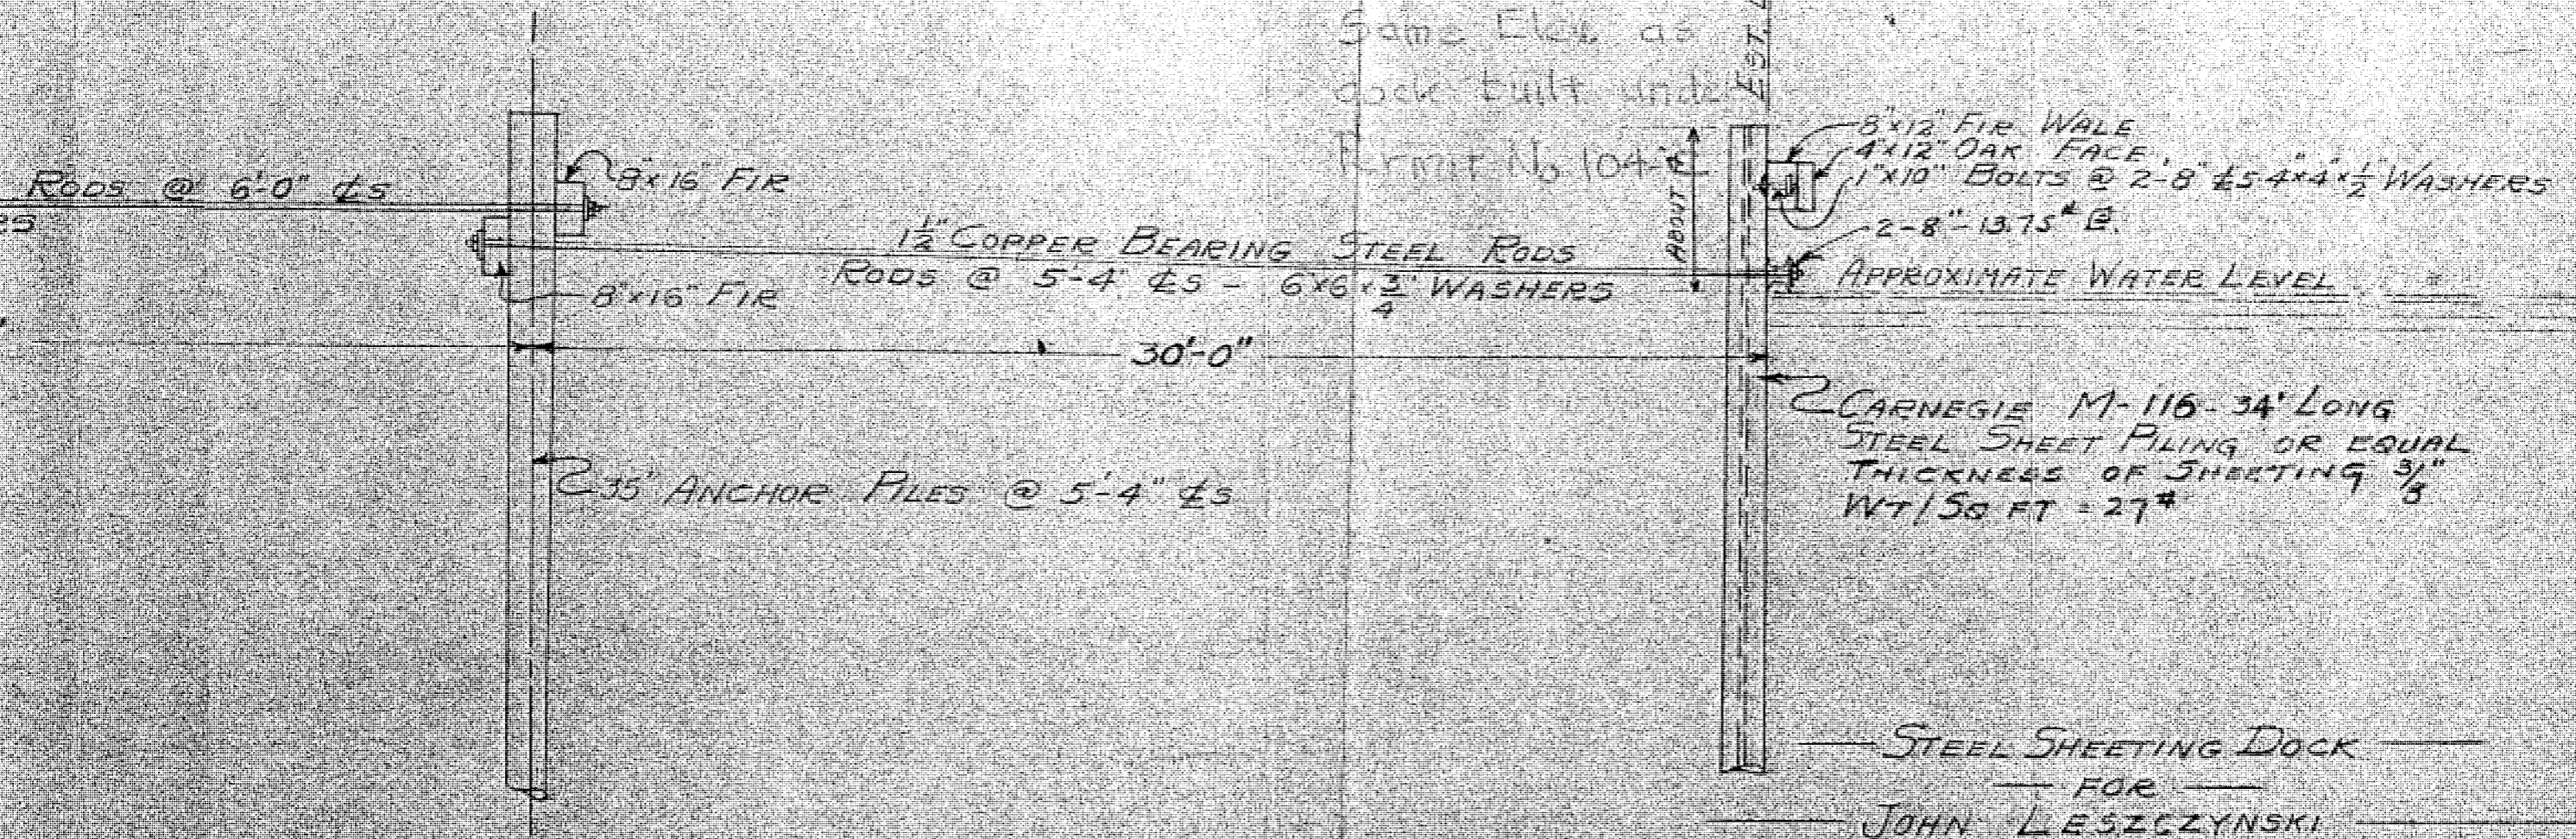 Same Elev. as
dock built under
Permit No. 104
EST.
RODS @ 6'-0" ₵s
8"x16" FIR
8"x16" FIR
1½" COPPER BEARING STEEL RODS
RODS @ 5'-4" ₵s - 6"x6"x¾" WASHERS
ABOUT
8"x12" FIR WALE
4"x12" OAK FACE
1"x10" BOLTS @ 2'-8" ₵s 4"x4"x½" WASHERS
2-8"-13.75#
APPROXIMATE WATER LEVEL
30'-0"
CARNEGIE M-116-34' LONG
STEEL SHEET PILING OR EQUAL
THICKNESS OF SHEETING 3/8"
WT/SQ FT = 27#
35' ANCHOR PILES @ 5'-4" ₵s
STEEL SHEETING DOCK
FOR
JOHN LESZCZYNSKI